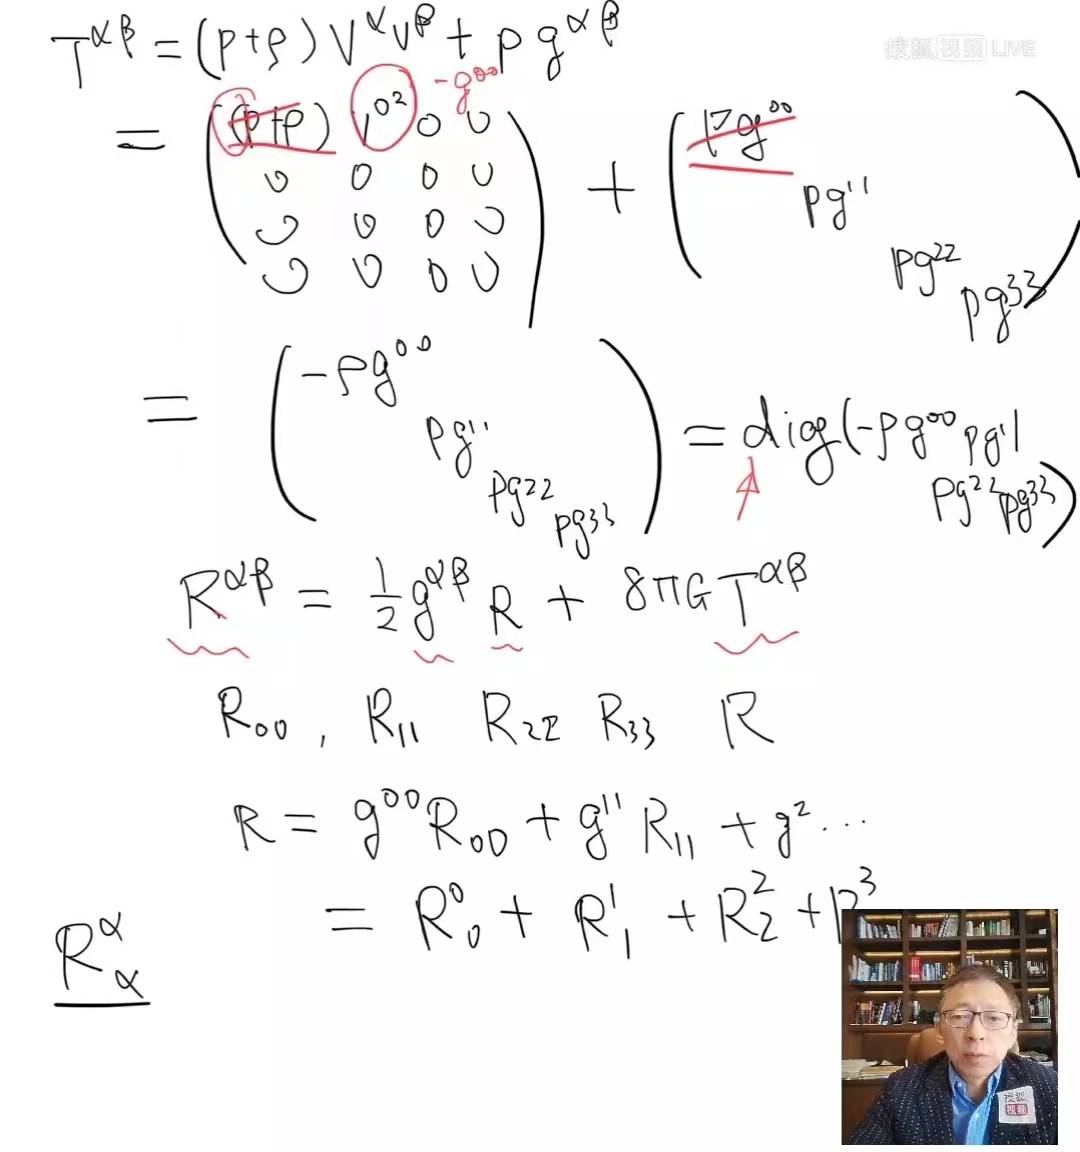 搜狐视频 LIVE
T^{αβ} = (p+ρ) V^α V^β + p g^{αβ}
-g^{00}
= ( (p+ρ) V^{0 2} 0 0 ) + ( p g^{00}
0 0 0 0   p g^{11}
0 0 0 0   p g^{22}
0 0 0 0   p g^{33} )
= ( -ρg^{00}
p g^{11}
p g^{22}
p g^{33} ) = diag(-ρg^{00} p g^{11}
p g^{22} p g^{33})
R^{αβ} = 1/2 g^{αβ} R + 8πG T^{αβ}
R_{00} , R_{11} R_{22} R_{33} R
R = g^{00} R_{00} + g^{11} R_{11} + g^2 ...
= R^0_0 + R^1_1 + R^2_2 + R^3
R^α_α
搜狐
视频